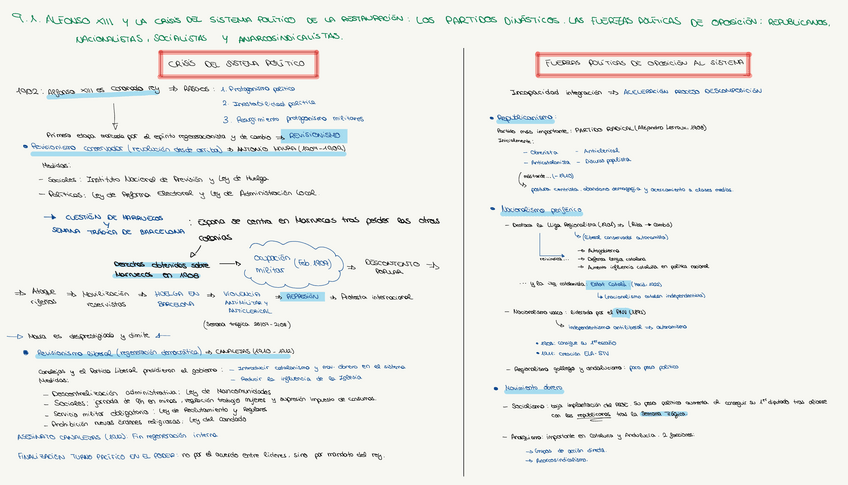 9.1. ALFONSO XIII Y LA CRISIS DEL SISTEMA POLÍTICO DE LA RESTAURACIÓN: LOS PARTIDOS DINÁSTICOS. LAS FUERZAS POLÍTICAS DE OPOSICIÓN: REPUBLICANOS,
NACIONALISTAS, SOCIALISTAS Y ANARCOSINDICALISTAS.
CRISIS DEL SISTEMA POLÍTICO
1902: Alfonso XIII es coronado rey ⇒ RASGOS: 1. Protagonismo político
2. Inestabilidad política
3. Resurgimiento protagonismo militares
Primera etapa marcada por el espíritu regeneracionista y de cambio ⇒ REVISIONISMO
• Revisionismo conservador (revolución desde arriba) ⇒ ANTONIO MAURA (1907-1909)
Medidas:
- Sociales: Instituto Nacional de Previsión y Ley de Huelga
- Políticas: Ley de Reforma Electoral y Ley de Administración Local
→ CUESTIÓN DE MARRUECOS
Y
SEMANA TRÁGICA DE BARCELONA
: España se centra en Marruecos tras perder las otras
colonias
Derechos obtenidos sobre
Marruecos en 1906
→ ocupación militar (Feb. 1909) ⇒ DESCONTENTO POPULAR ⇒
⇒ Ataque rifeños → Movilización reservistas → HUELGA EN BARCELONA → VIOLENCIA ANTIMILITAR Y ANTICLERICAL → REPRESIÓN → Protesta internacional
(Semana trágica
→ Maura es desprestigiado y dimite
• Revisionismo liberal (regeneración democrática) ⇒ CANALEJAS (1910-1912)
Canalejas y el Partido Liberal presidieron el gobierno: - Introducir catalanismo y mov. obrero en el sistema
- Reducir la influencia de la Iglesia
Medidas:
- Descentralización administrativa: Ley de Mancomunidades
- Sociales: jornada de 9h en minas, regulación trabajo mujeres y supresión impuesto de consumos
- Servicio militar obligatorio: Ley de Reclutamiento y Reemplazo
- Prohibición nuevas órdenes religiosas: Ley del candado
ASESINATO CANALEJAS (1912): Fin regeneración interna
FINALIZACIÓN TURNO PACÍFICO EN EL PODER: no por el acuerdo entre líderes, sino por mandato del rey.
FUERZAS POLÍTICAS DE OPOSICIÓN AL SISTEMA
Incapacidad integración ⇒ ACELERACIÓN PROCESO DESCOMPOSICIÓN
• Republicanismo:
Partido más importante: PARTIDO RADICAL (Alejandro Lerroux, 1908)
Inicialmente:
- Obrerista - Anticlerical
- Anticatalanista - Discurso populista
más tarde... (~1910)
postura centrista, abandona demagogia y acercamiento a clases medias.
• Nacionalismo periférico
- Destaca la Lliga Regionalista (1901) ⇒ (Prat → Cambó)
(liberal conservador autonomista)
→ Autogobierno
→ Defensa lengua catalana
→ Aumento influencia catalanista en política nacional
... y la izq catalanista: Estat Catalá
(nacionalismo catalán independentista)
- Nacionalismo vasco: liderado por el PNV (1895)
independentismo antiliberal ⇒ autonomismo
• 1918: consigue su 1er escaño
• 1911: creación ELA-STV
- Regionalismo gallego y andalucismo: poco peso político
• Movimiento obrero
- Socialismo: baja implantación del PSOE. Su peso político aumenta al conseguir su 1er diputado tras aliarse
con los republicanos tras la Semana Trágica.
- Anarquismo: importante en Cataluña y Andalucía. 2 facciones:
→ Grupos de acción directa.
→ Anarcosindicalismo.